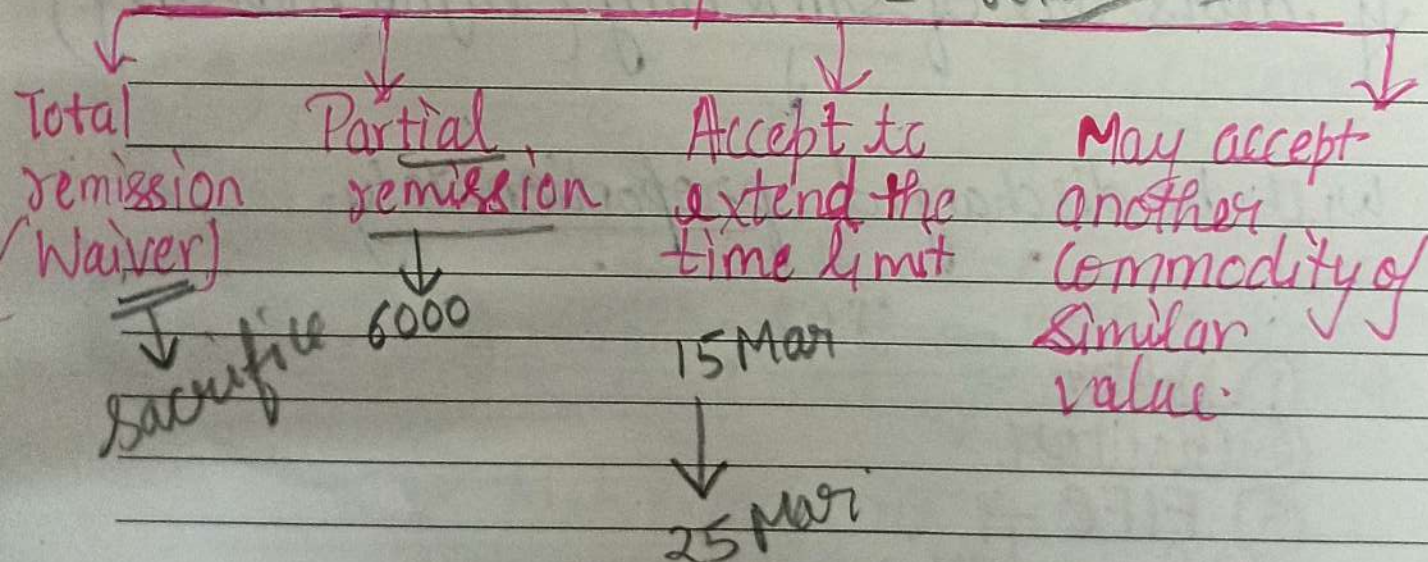 Total
remission
(Waiver)
sacrifice
Partial
remission
6000
Accept to
extend the
time limit
15 Mar
25 Mar
May accept
another
commodity of
similar
value.